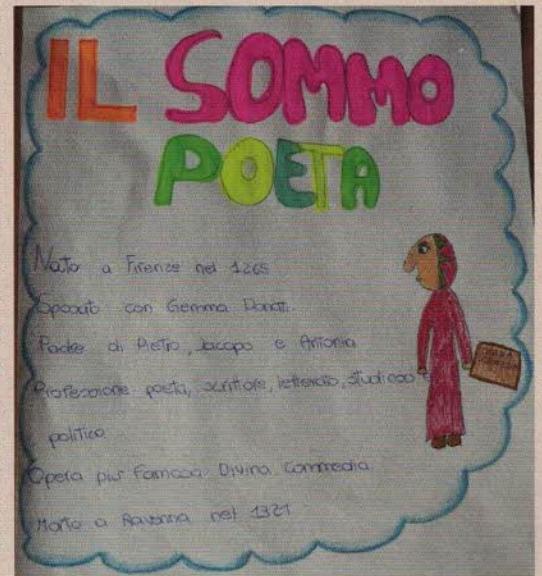 IL SOMMO
POETA
Nato a Firenze nel 1265
Sposato con Gemma Donati
Padre di Pietro, Jacopo e Antonia
Professione poeta, scrittore, letterato, studioso e
politico
Opera più famosa Divina Commedia
Morto a Ravenna nel 1321